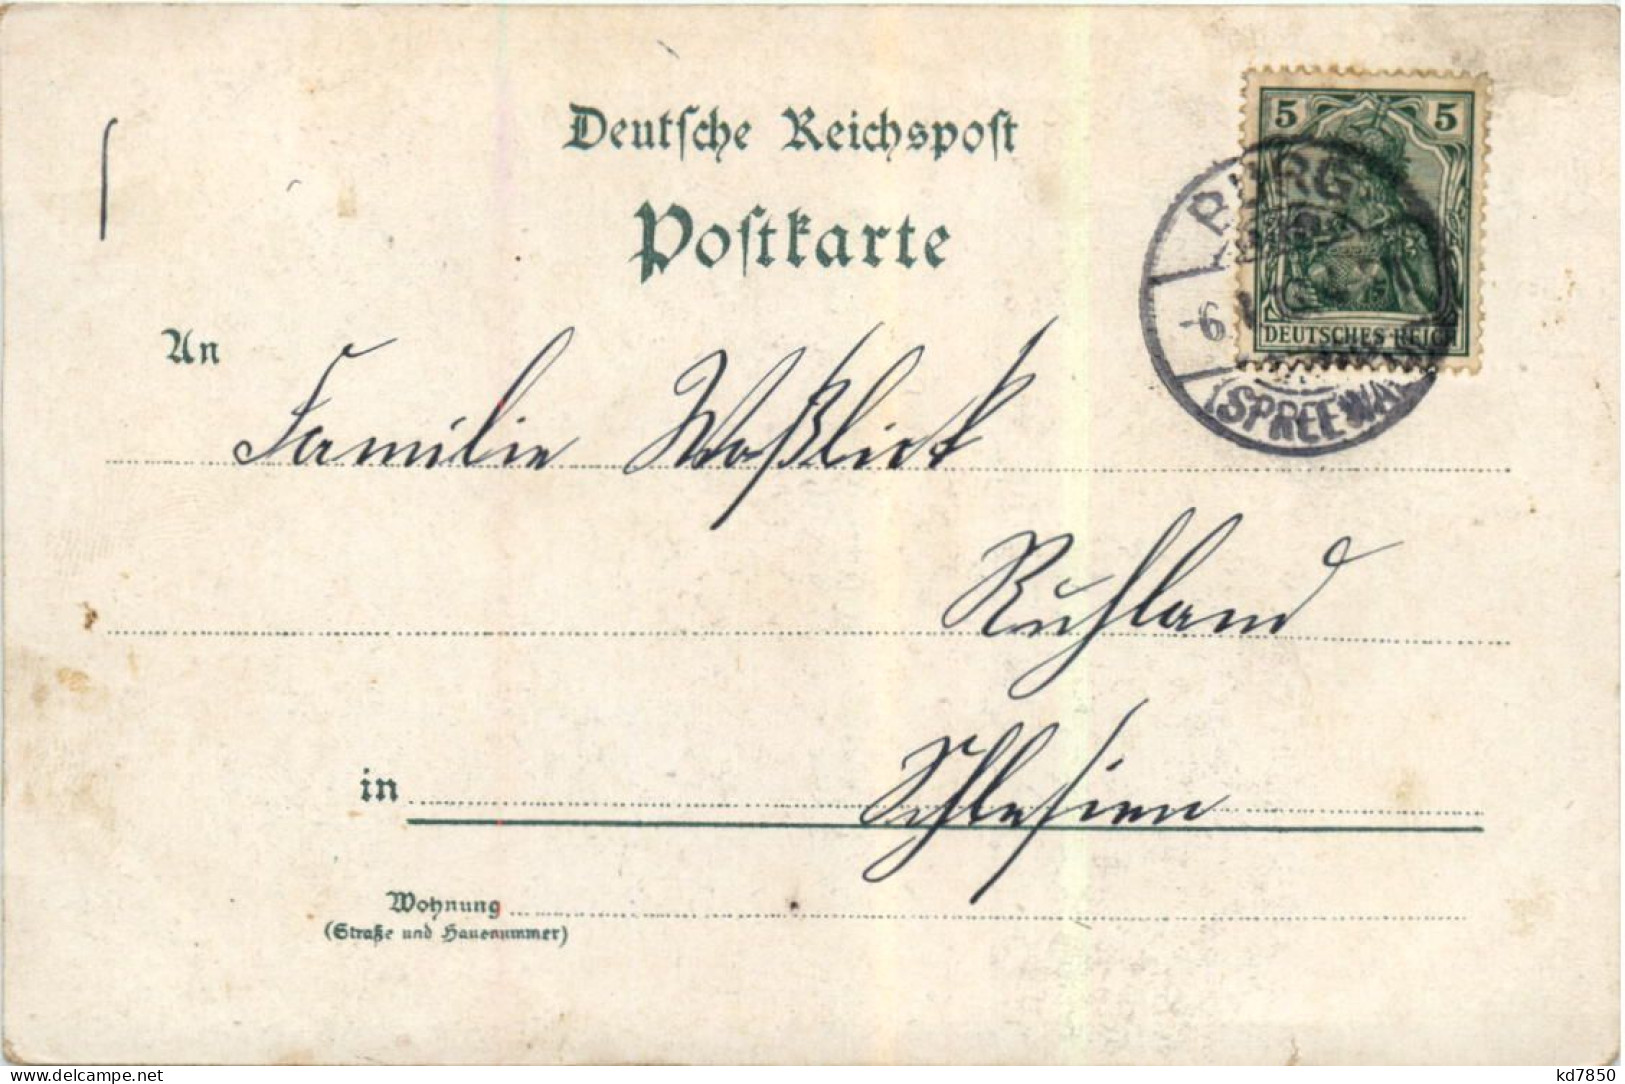 Deutsche Reichspost
Postkarte
5 5
DEUTSCHES REICH
BURG
-6.
(SPREEWA
An Familie Woßlick
Ruhland
in Schlesien
Wohnung
(Straße und Hausnummer)
www.delcampe.net
kd7850